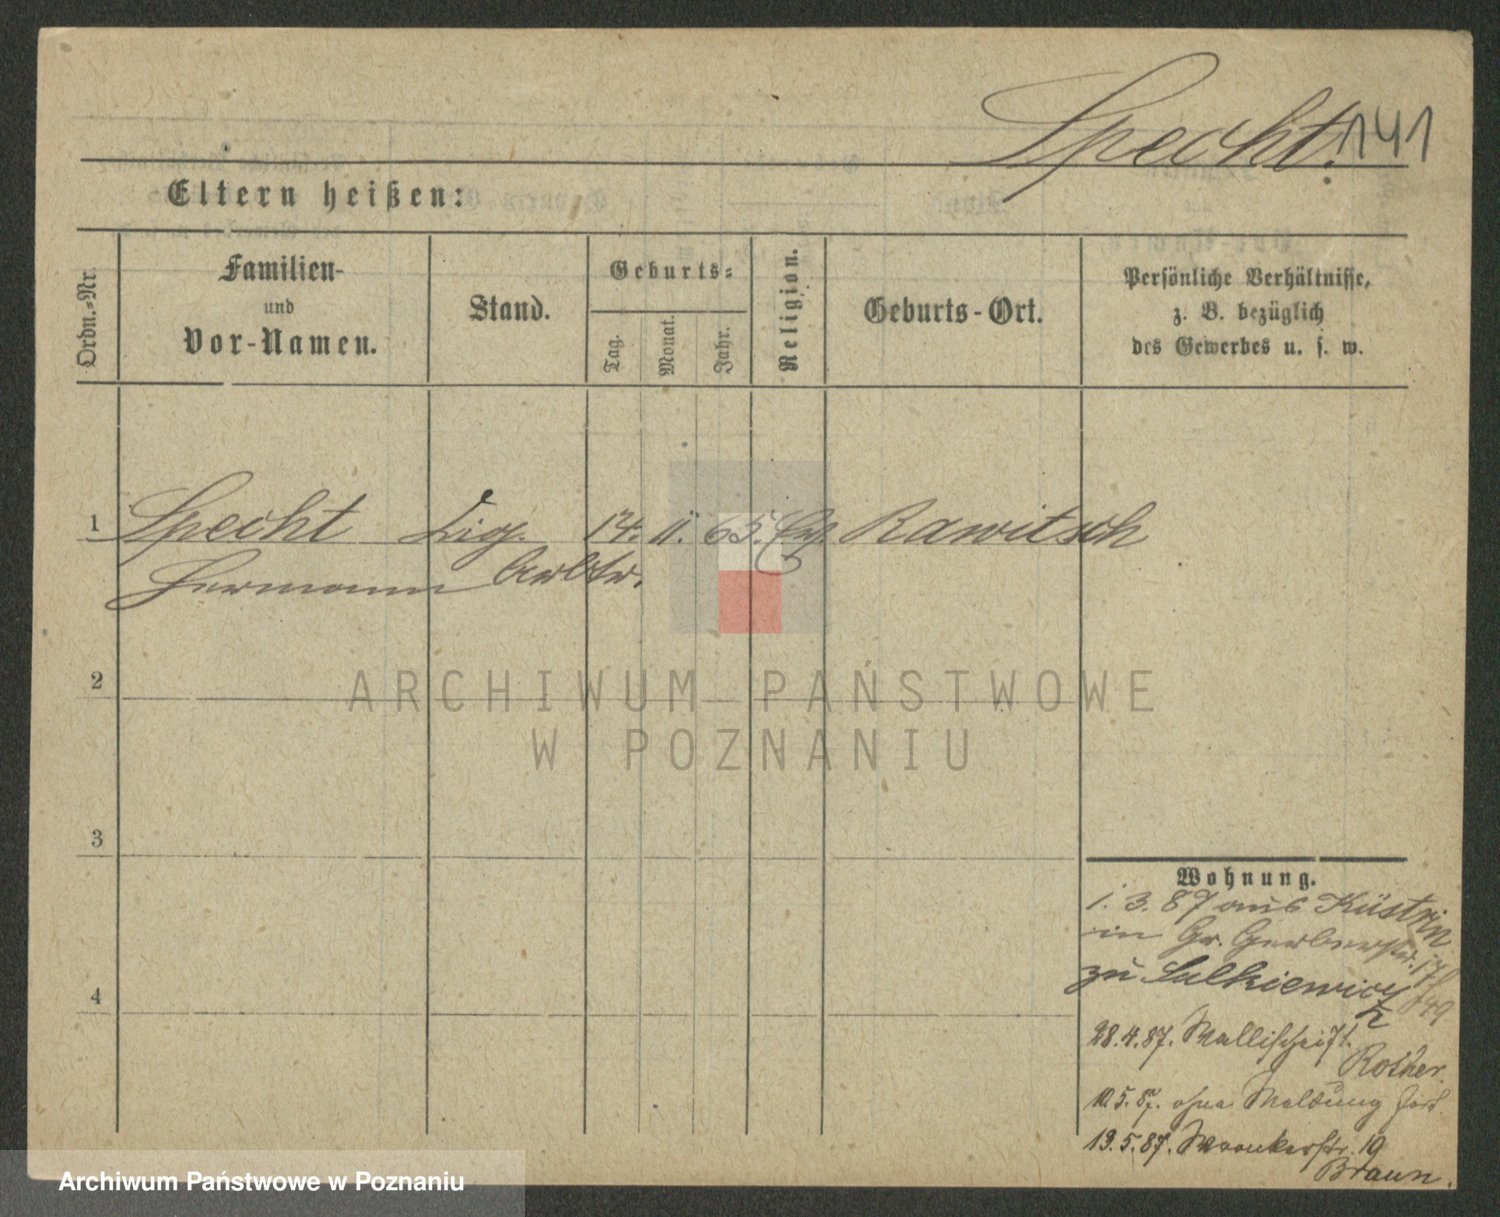 Specht. 141
Eltern heißen:
Ordn.-Nr.
Familien-
und
Vor-Namen.
Stand.
Geburts-
Tag.
Monat.
Jahr.
Religion.
Geburts-Ort.
Persönliche Verhältnisse,
z. B. bezüglich
des Gewerbes u. s. w.
1 Specht Zig. 14. 11. 65. Ev. Rawitsch
Hermann Arbtr.
2
3
4
Wohnung.
1. 3. 87 aus Küstrin
in Gr. Gerberstr. 17
zu Salkiewicz
28.4.87. Wallischei
Rother.
10.5.87. ohne Meldung fort
13.5.87. Wronkerstr. 19
Braun.
ARCHIWUM PAŃSTWOWE
W POZNANIU
Archiwum Państwowe w Poznaniu